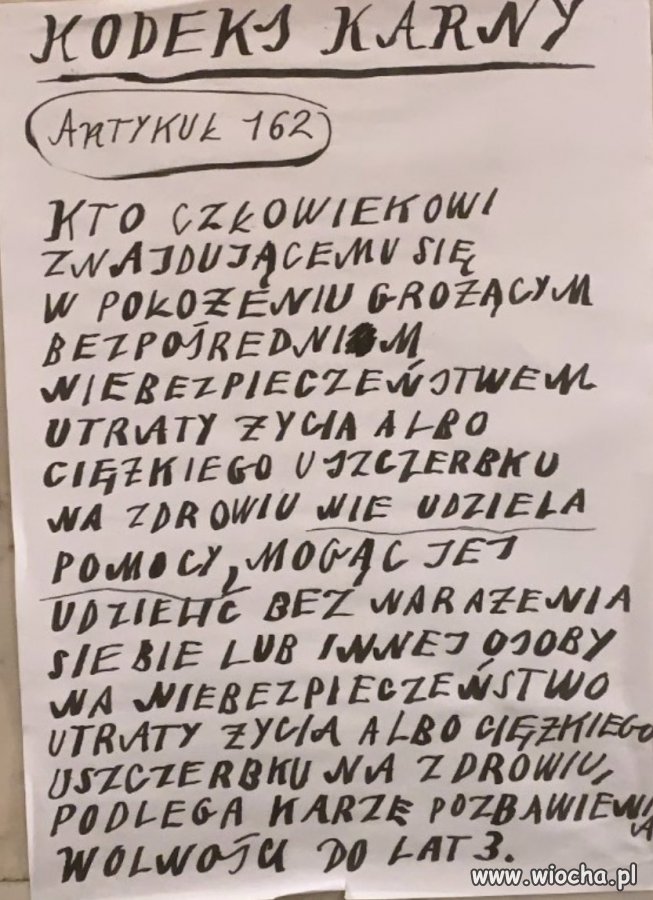 KODEKS KARNY
ARTYKUŁ 162
KTO CZŁOWIEKOWI
ZNAJDUJĄCEMU SIĘ
W POŁOŻENIU GROŻĄCYM
BEZPOŚREDNIM
NIEBEZPIECZEŃSTWEM
UTRATY ŻYCIA ALBO
CIĘŻKIEGO USZCZERBKU
NA ZDROWIU NIE UDZIELA
POMOCY, MOGĄC JEJ
UDZIELIĆ BEZ NARAŻENIA
SIEBIE LUB INNEJ OSOBY
NA NIEBEZPIECZEŃSTWO
UTRATY ŻYCIA ALBO CIĘŻKIEGO
USZCZERBKU NA ZDROWIU,
PODLEGA KARZĘ POZBAWIENIA
WOLNOŚCI DO LAT 3.
www.wiocha.pl